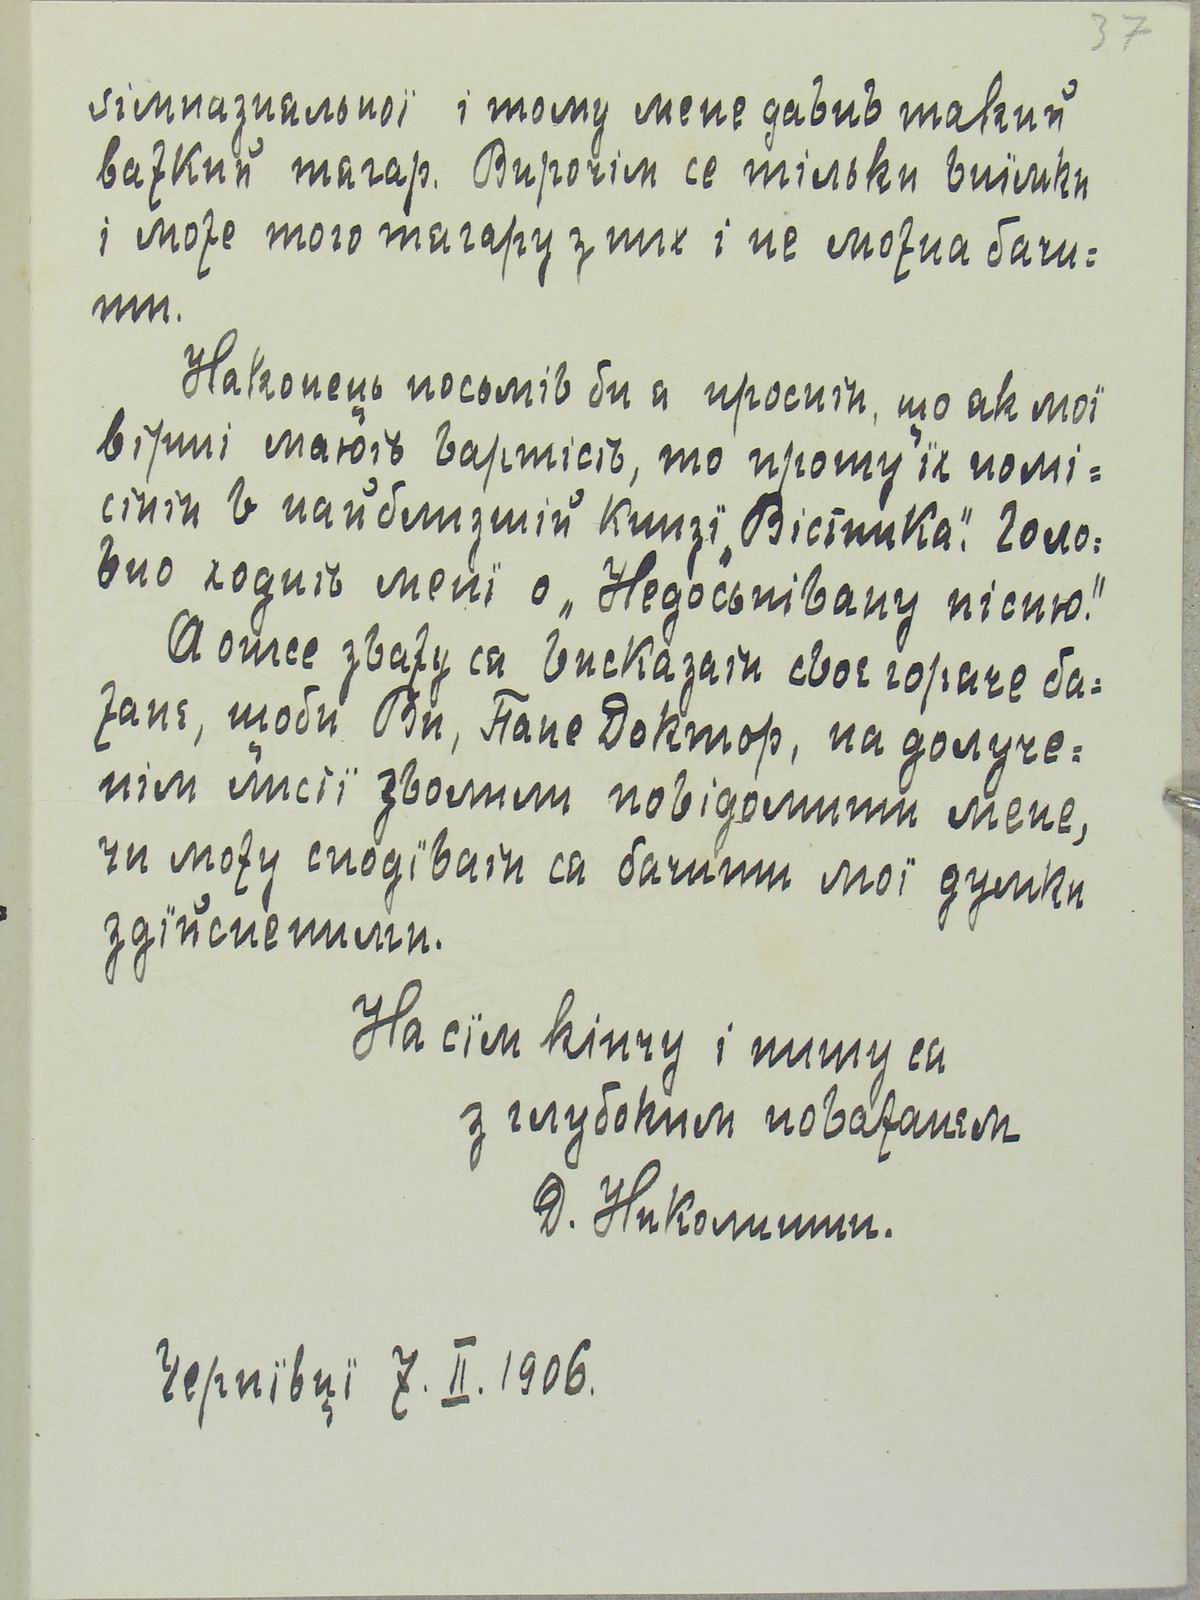 37
ґімназияльної і тому мене давив такий
важкий тягар. Впрочім се тільки виїмки
і може того тягару з них і не можна бачи=
ти.
Наконець посьмів би я просити, що як мої
вірші мають вартість, то прошу їх помі=
стити в найблизшій книзї „Вістника“. Голо=
вно ходить менї о „Недосьпівану пісню.“
А отже зважу ся висказати своє горяче ба=
жанє, щоби Ви, Пане Доктор, на долуче=
нім листї зволили повідомити мене,
чи можу сподївати ся бачити мої думки
здїйсненими.
На сїм кінчу і пишу ся
з глубоким поважанєм
Д. Николишин.
Чернївцї 7. II. 1906.